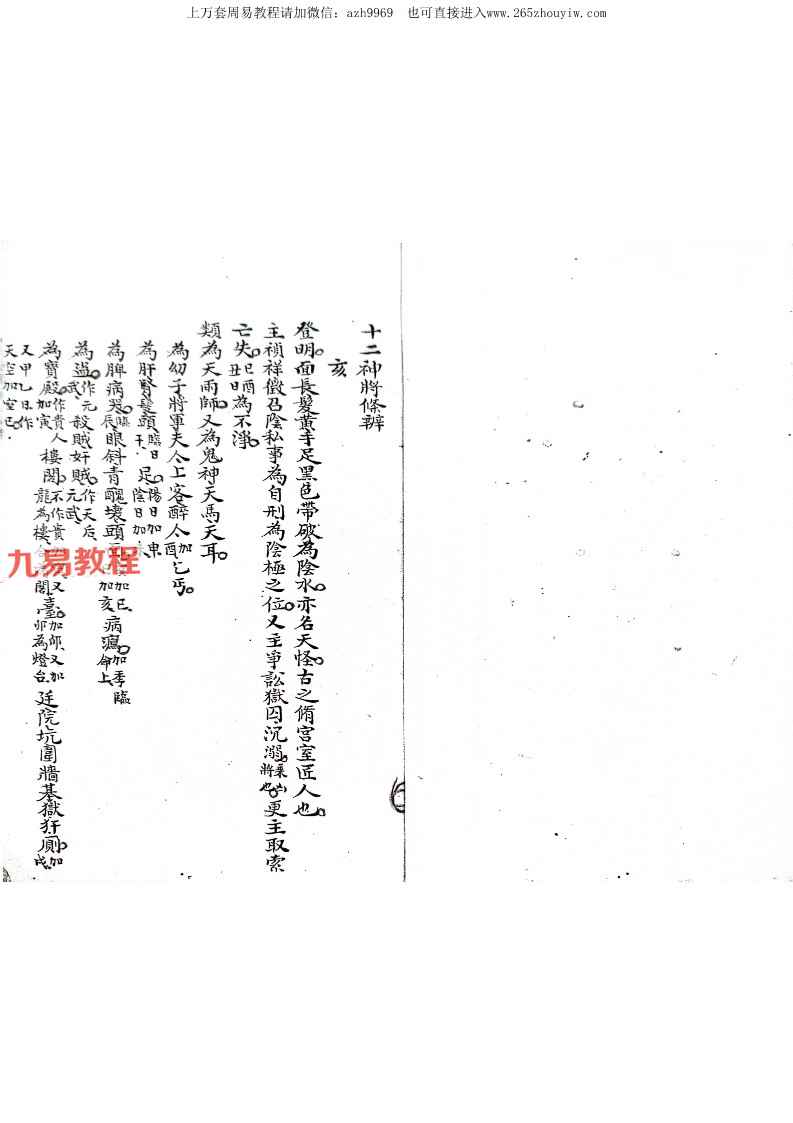 上万套周易教程请加微信：azh9969　也可直接进入www.265zhouyiw.com
十二神將條辨
亥
登明。面長髮黃手足黑色帶破為陰水。亦名天怪。古之脩宮室匠人也。
主禎祥徵召陰私事為自刑為陰極之位。又主爭訟獄囚沉溺。乘凶將也。更主取索
亡失。巳酉丑日為不淨。
類為天雨師。又為鬼神天馬天耳。
為幼子將軍夫人上客醉人加酉乞丐。
為肝腎髮頭臨日干、足。陽日加申、陰日加
為脾病哭。臨辰、眼斜青醜壞頭 加巳 加亥、病瀉。加季臨命上、
為盜。作元武、殺賊奸賊。作天后、元武、
為寶殿。作貴人加寅、樓閣。不作貴 又龍為樓 閣、臺。加卯、又加卯為燈台、廷院坑圍牆基獄犴厠。加戌。
又甲乙日作天空加室也。
九易教程